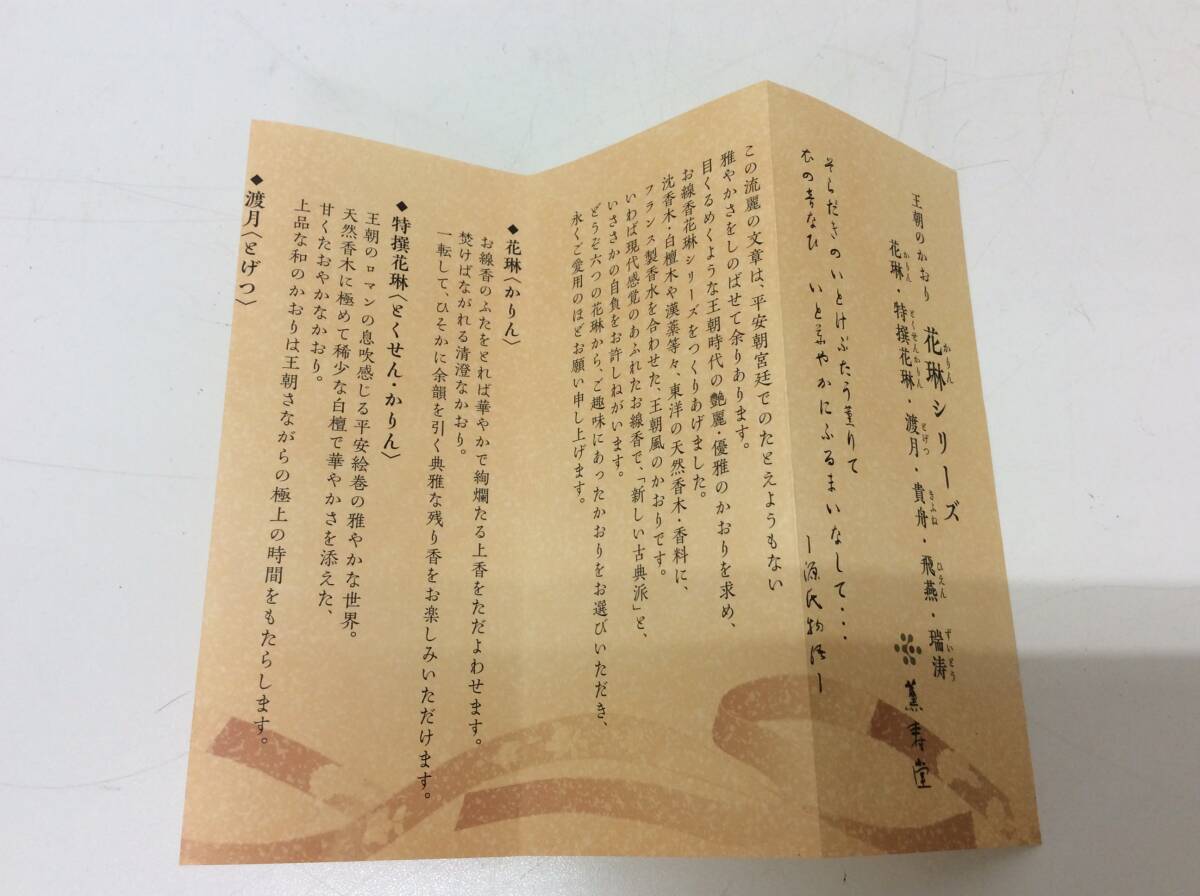 王朝のかおり 花琳シリーズ
花琳・特撰花琳・渡月・貴舟・飛燕・瑞涛
薫寿堂
そらだきのいとけぶたう薫りて
衣の音なひ いと華やかにふるまいなして・・・
―源氏物語―
この流麗の文章は、平安朝宮廷でのたとえようもない
雅やかさをしのばせて余りあります。
目くるめくような王朝時代の艶麗・優雅のかおりを求め、
お線香花琳シリーズをつくりあげました。
沈香木・白檀木や漢薬等々、東洋の天然香木・香料に、
フランス製香水を合わせた、王朝風のかおりです。
いわば現代感覚のあふれたお線香で、「新しい古典派」と、
いささかの自負をお許しねがいます。
どうぞ六つの花琳から、ご趣味にあったかおりをお選びいただき、
永くご愛用のほどお願い申し上げます。
◆花琳〈かりん〉
お線香のふたをとれば華やかで絢爛たる上香をただよわせます。
焚けばながれる清澄なかおり。
一転して、ひそかに余韻を引く典雅な残り香をお楽しみいただけます。
◆特撰花琳〈とくせん・かりん〉
王朝のロマンの息吹感じる平安絵巻の雅やかな世界。
天然香木に極めて稀少な白檀で華やかさを添えた、
甘くたおやかなかおり。
上品な和のかおりは王朝さながらの極上の時間をもたらします。
◆渡月〈とげつ〉